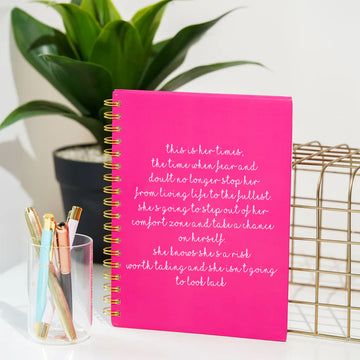 this is her times,
the time when fear and
doubt no longer stop her
from living life to the fullest.
she's going to step out of her
comfort zone and take a chance
on herself.
she knows she is a risk
worth taking and she isn't going
to look back